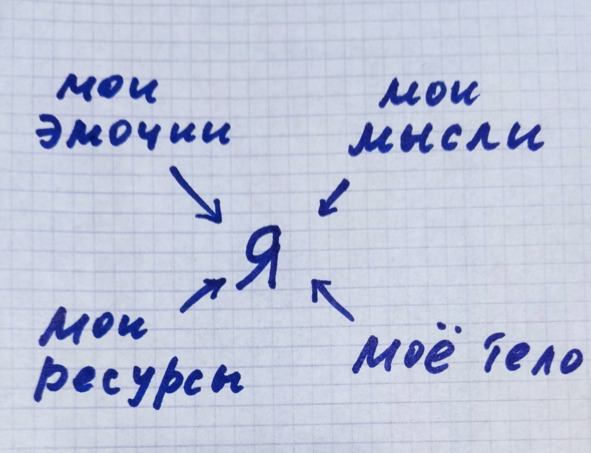 мои
эмоции
мои
мысли
Я
мои
ресурсы
моё тело